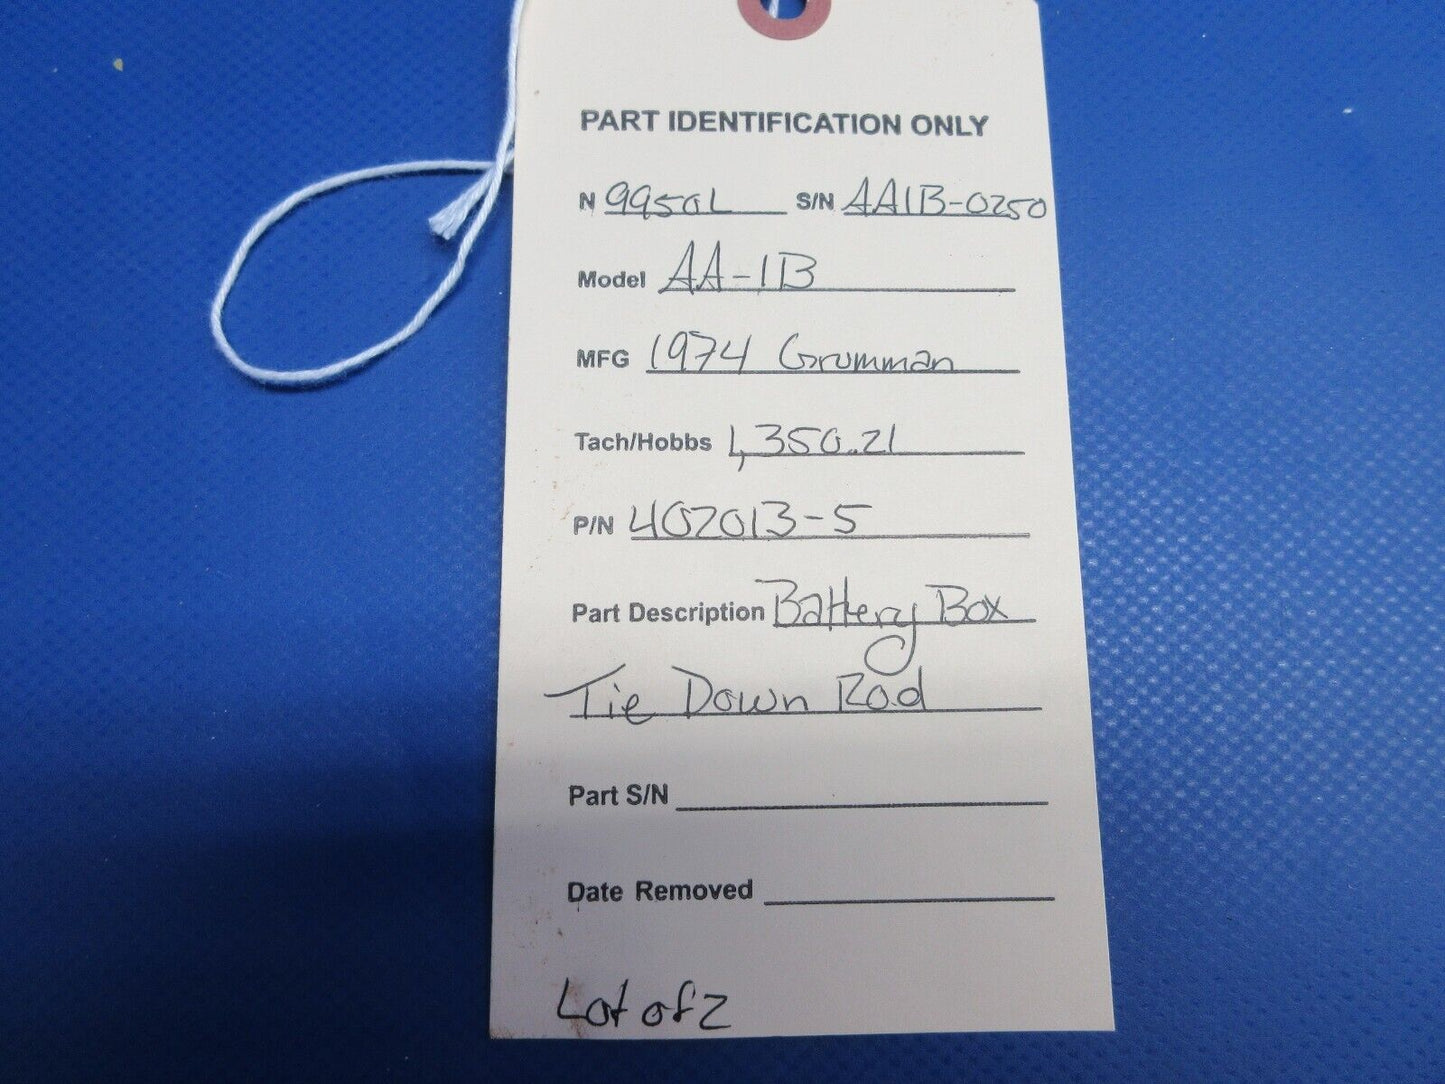 PART IDENTIFICATION ONLY
N 9950L S/N AA1B-0250
Model AA-1B
MFG 1974 Grumman
Tach/Hobbs 1,350.21
P/N 402013-5
Part Description Battery Box
Tie Down Rod
Part S/N
Date Removed
Lot of 2